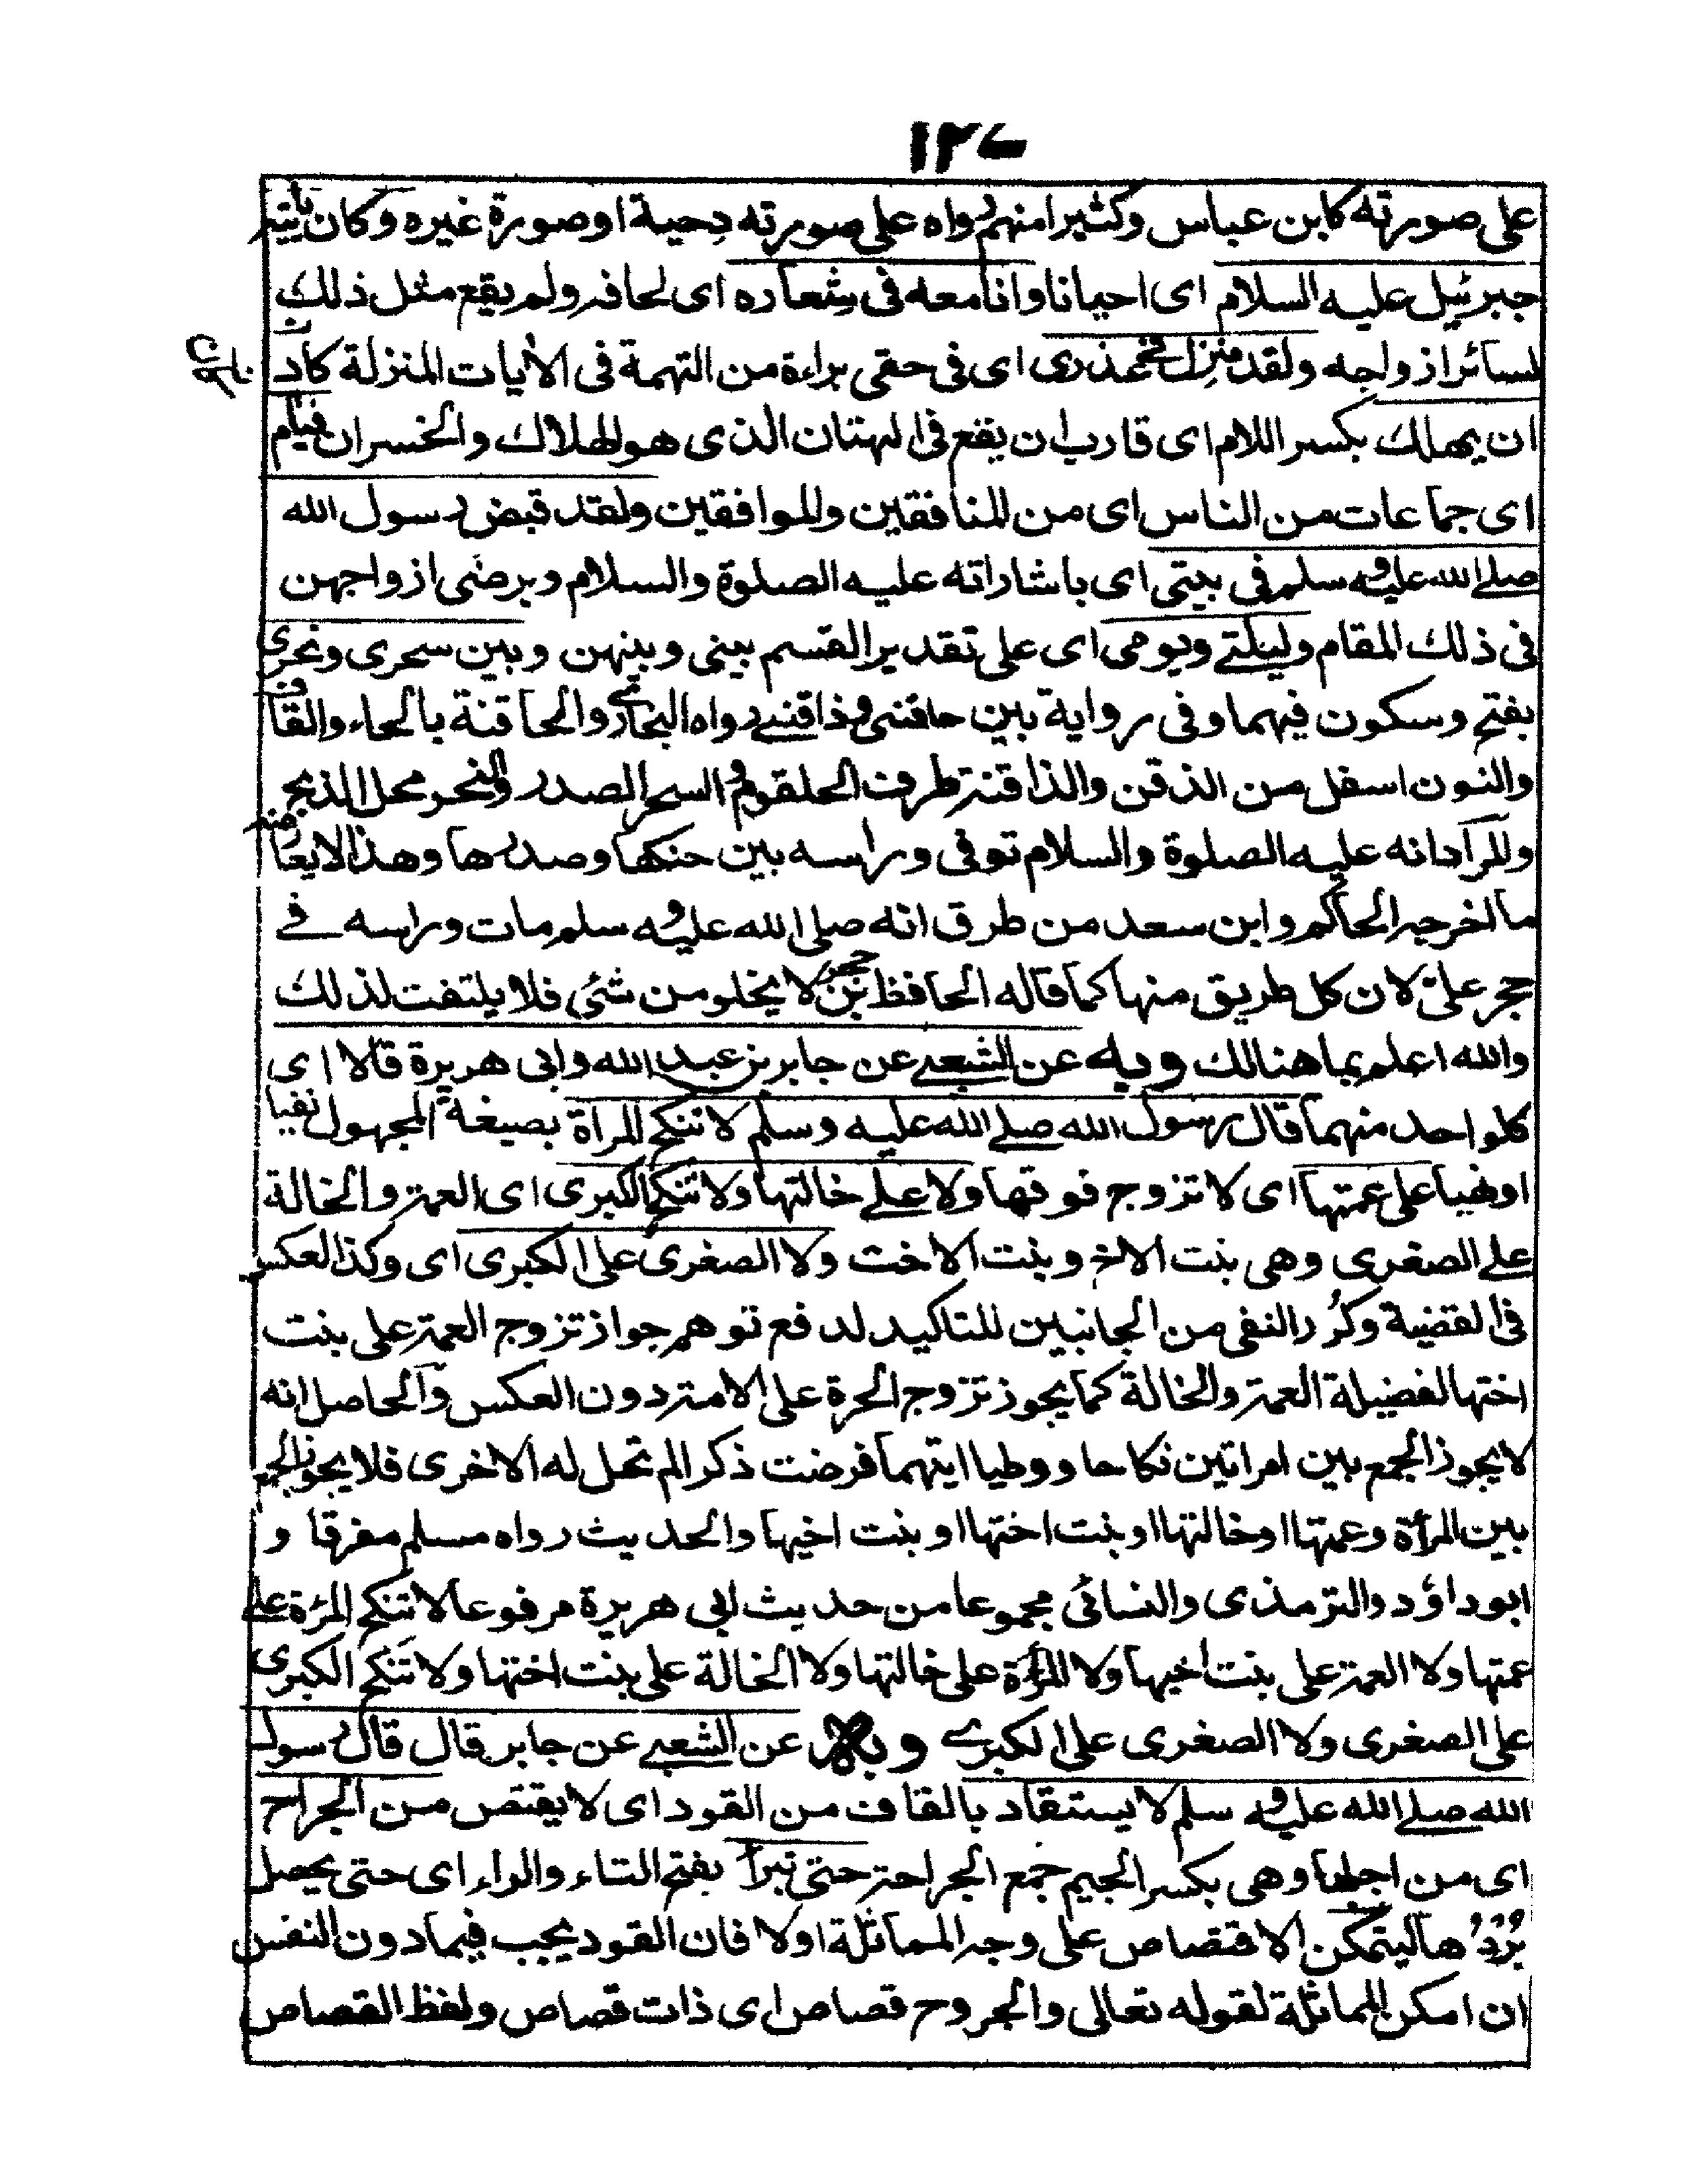 ١٢٧
على صورته كابن عباس وكثيرا منهم رواه على صورته دحية او صورة غيره وكان ياتيه
جبرئيل عليه السلام اى احيانا وانا معه فى شعاره اى لحافه ولم يقع مثل ذلك
لسائر ازواجه ولقد نزل فى عذرى اى فى حقى براءة من التهمة فى الأيات المنزلة كاد
ان يهلك بكسر اللام اى قارب ان يقع فى البهتان الذى هو الهلاك والخسران فيام
اى جماعات من الناس اى من المنافقين والموافقين ولقد قبض رسول الله
صلے الله عليه و سلم فى بيتى اى باشاراته عليه الصلوة والسلام وبرضى ازواجهن
فى ذلك المقام وليلتے ويومى اى على تقدير القسم بينى وبينهن وبين سحرى ونحرى
بفتح وسكون فيهما وفى رواية بين حاقنتى وذاقنتے رواه البخارى والحاقنة بالحاء والقاف
والنون اسفل من الذقن والذاقنة طرف الحلقوم و السحر الصدر والنحر محل الذبح
والمراد انه عليه الصلوة والسلام توفى وراسه بين حنكها وصدرها وهذا لايعارضه
ما اخرجه الحاكم وابن سعد من طرق انه صلى الله عليه و سلم مات وراسه فے
حجر علىّ لان كل طريق منها كما قاله الحافظ بن حجر لا يخلو من شئ فلا يلتفت لذلك
والله اعلم بما هنالك وبه عن الشعبے عن جابر بن عبد الله وابى هريرة قالا اى
كلو احد منهما قال رسول الله صلے الله عليه وسلم لا تنكح المراة بصيغة المجهول نفيا
او نهيا على عمتها اى لا تزوج فوقها ولا علے خالتها ولا تنكح الكبرى اى العمة والخالة
علے الصغرى وهى بنت الاخ وبنت الاخت ولا الصغرى على الكبرى اى وكذا العكس
فى القضية وكُرّر النفى من الجانبين للتاكيد لدفع توهم جواز تزوج العمة على بنت
اختها لفضيلة العمة والخالة كما يجوز تزوج الحرة على الامة دون العكس والحاصل انه
لا يجوز الجمع بين امراتين نكاحا ووطيا ايتهما فرضت ذكرا لم تحل له الاخرى فلا يجوز الجمع
بين المرأة وعمتها او خالتها او بنت اختها او بنت اخيها والحديث رواه مسلم مفرقا و
ابو داؤد والترمذى والنسائى مجموعا من حديث ابى هريرة مرفوعا لا تنكح المرءة علے
عمتها ولا العمة على بنت اخيها ولا المرأة على خالتها ولا الخالة على بنت اختها ولا تنكح الكبرى
على الصغرى ولا الصغرى على الكبرے وبه عن الشعبے عن جابر قال قال رسول
الله صلے الله عليه و سلم لا يستقاد بالقاف من القود اى لا يقتص من الجراح
اى من اجلها وهى بكسر الجيم جمع الجراحة حتى تبرأ بفتح التاء والراء اى حتى يحصل
بُرْؤُها ليتمكن الاقتصاص على وجه المماثلة اولا فان القود يجب فيما دون النفس
ان امكن المماثلة لقوله تعالى والجروح قصاص اى ذات قصاص ولفظ القصاص